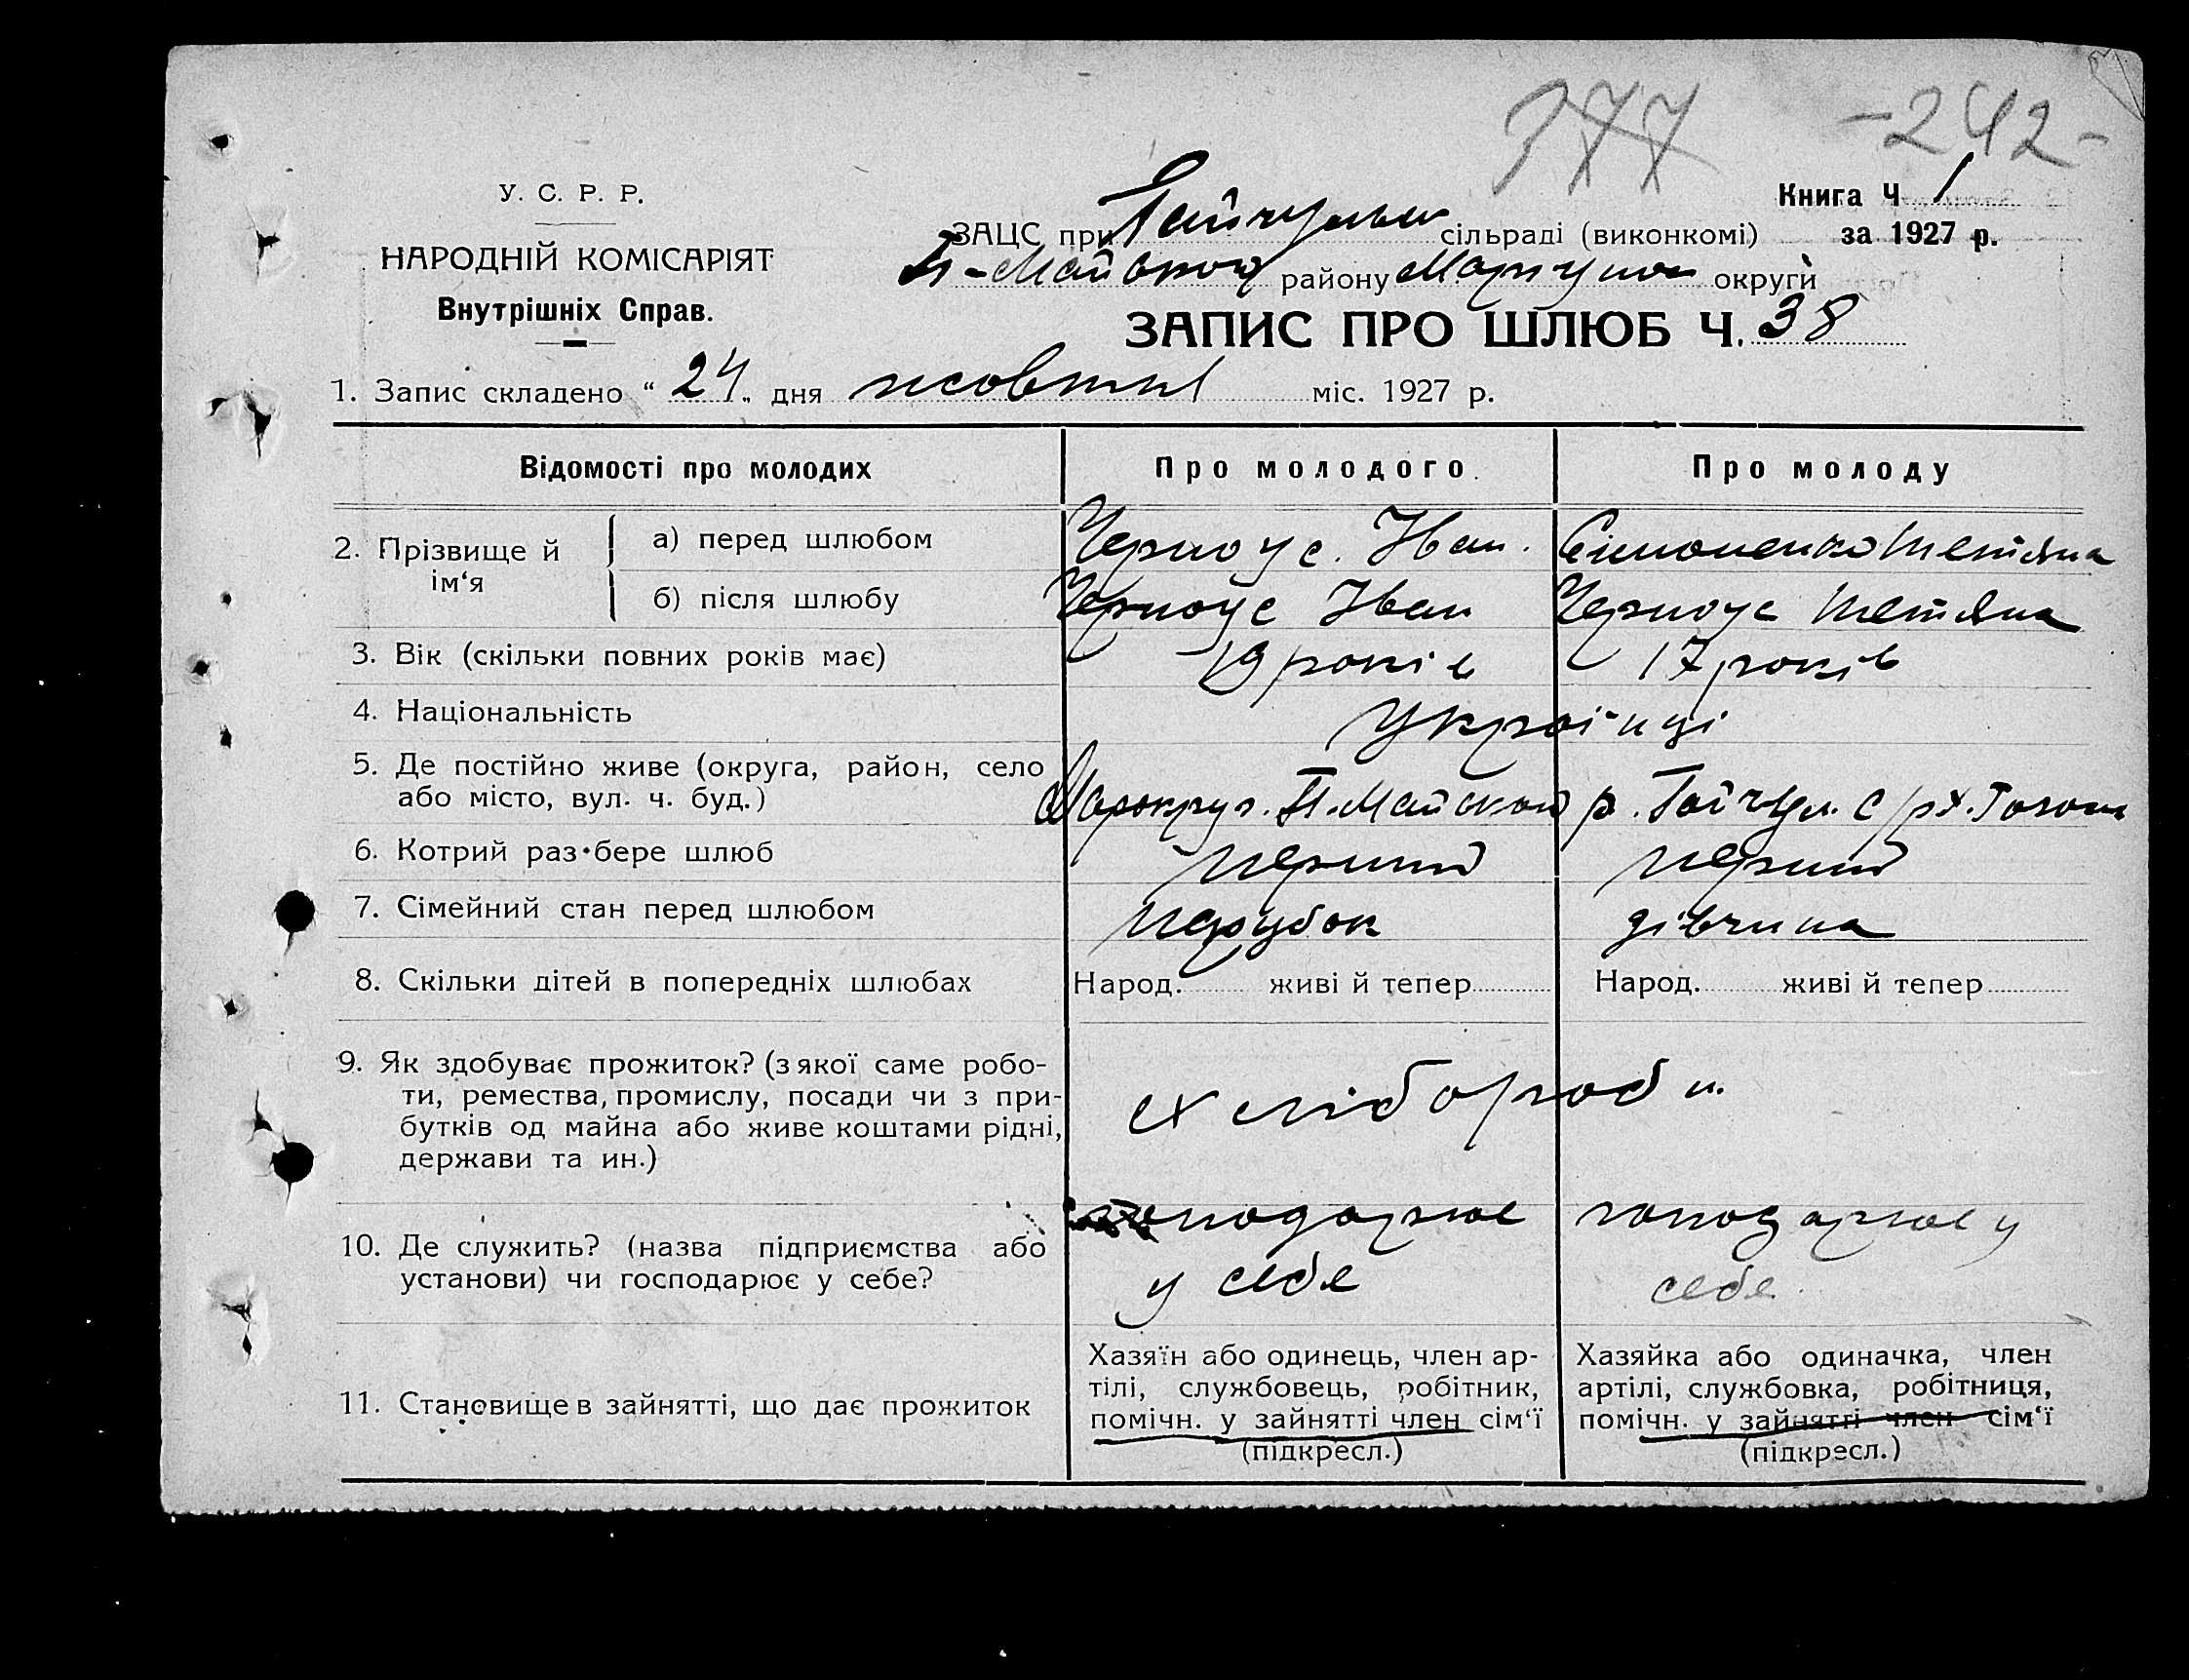 377 -242-
У. С. Р. Р.
Книга Ч 1
ЗАЦС при Гайчульск сільраді (виконкомі) за 1927 р.
НАРОДНІЙ КОМІСАРІЯТ
П-Майського району Маріупол округи
Внутрішніх Справ.
ЗАПИС ПРО ШЛЮБ Ч. 38
1. Запис складено “ 24 „ дня жовтня міс. 1927 р.
Відомості про молодих Про молодого. Про молоду
2. Прізвище й ім‘я
а) перед шлюбом Черноус. Іван. Сімоненко Тетяна
б) після шлюбу Черноус Іван Черноус Тетяна
3. Вік (скільки повних років має) 19 років 17 років
4. Національність Українці
5. Де постійно живе (округа, район, село
або місто, вул. ч. буд.) П.Майської р. Гайчул. с/р х.
6. Котрий раз бере шлюб перший перший
7. Сімейний стан перед шлюбом парубок дівчина
8. Скільки дітей в попередніх шлюбах Народ. живі й тепер Народ. живі й тепер
9. Як здобуває прожиток? (з якої саме робо-
ти, ремества, промислу, посади чи з при-
бутків од майна або живе коштами рідні,
держави та ин.)
хлібороби
10. Де служить? (назва підприємства або
установи) чи господарює у себе?
господарює
у себе
господарює у
себе
11. Становище в зайнятті, що дає прожиток
Хазяїн або одинець, член ар-
тілі, службовець, робітник,
помічн. у зайнятті член сім‘ї
(підкресл.)
Хазяйка або одиначка, член
артілі, службовка, робітниця,
помічн. у зайнятті член сім‘ї
(підкресл.)